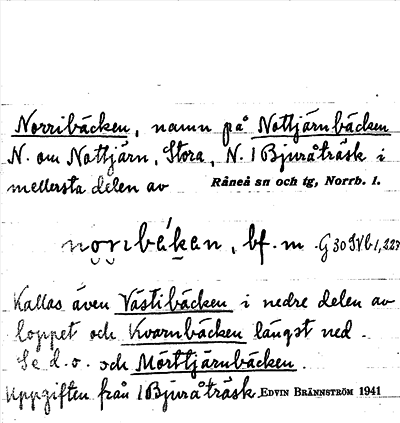 Norribäcken, namn på Nottjärnbäcken
N. om Nottjärn, Stora, N. i Bjuråträsk i
mellersta delen av Råneå sn och tg, Norrb. l.
bf. m
Kallas även Västibäcken i nedre delen av
loppet och Kvarnbäcken längst ned.
Se d. o. och Mörttjärnbäcken.
Uppgiften från i Bjuråträsk EDVIN BRÄNNSTRÖM 1941